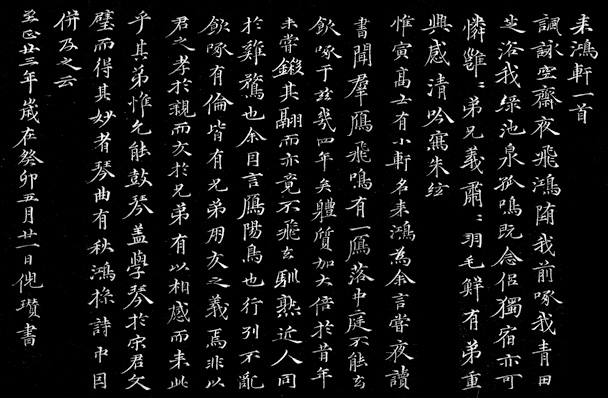 来鴻軒一首
諷詠空齋夜飛鴻隨我前啄我青田
芝浴我緑池泉孤鳴既念侣獨宿亦可
憐雝〻弟兄義肅〻羽毛鮮有弟重
興感清吟寫朱絃
惟寅高士有小軒名来鴻為余言嘗夜讀
書聞羣鴈飛鳴有一鴈落中庭不能去
飲啄于兹幾四年矣軆質加大倍於昔年
未嘗鎩其翮而亦竟不飛去馴熟近人同
於雞鶩也余因言鴈陽鳥也行列不亂
飲啄有倫皆有兄弟朋友之義焉非以
君之孝於親而友於兄弟有以相感而来此
乎其弟惟允能鼓琴盖學琴於宋君文
璧而得其妙者琴曲有秋鴻操詩中因
併及之云
至正廿三年歲在癸卯五月廿一日倪瓚書